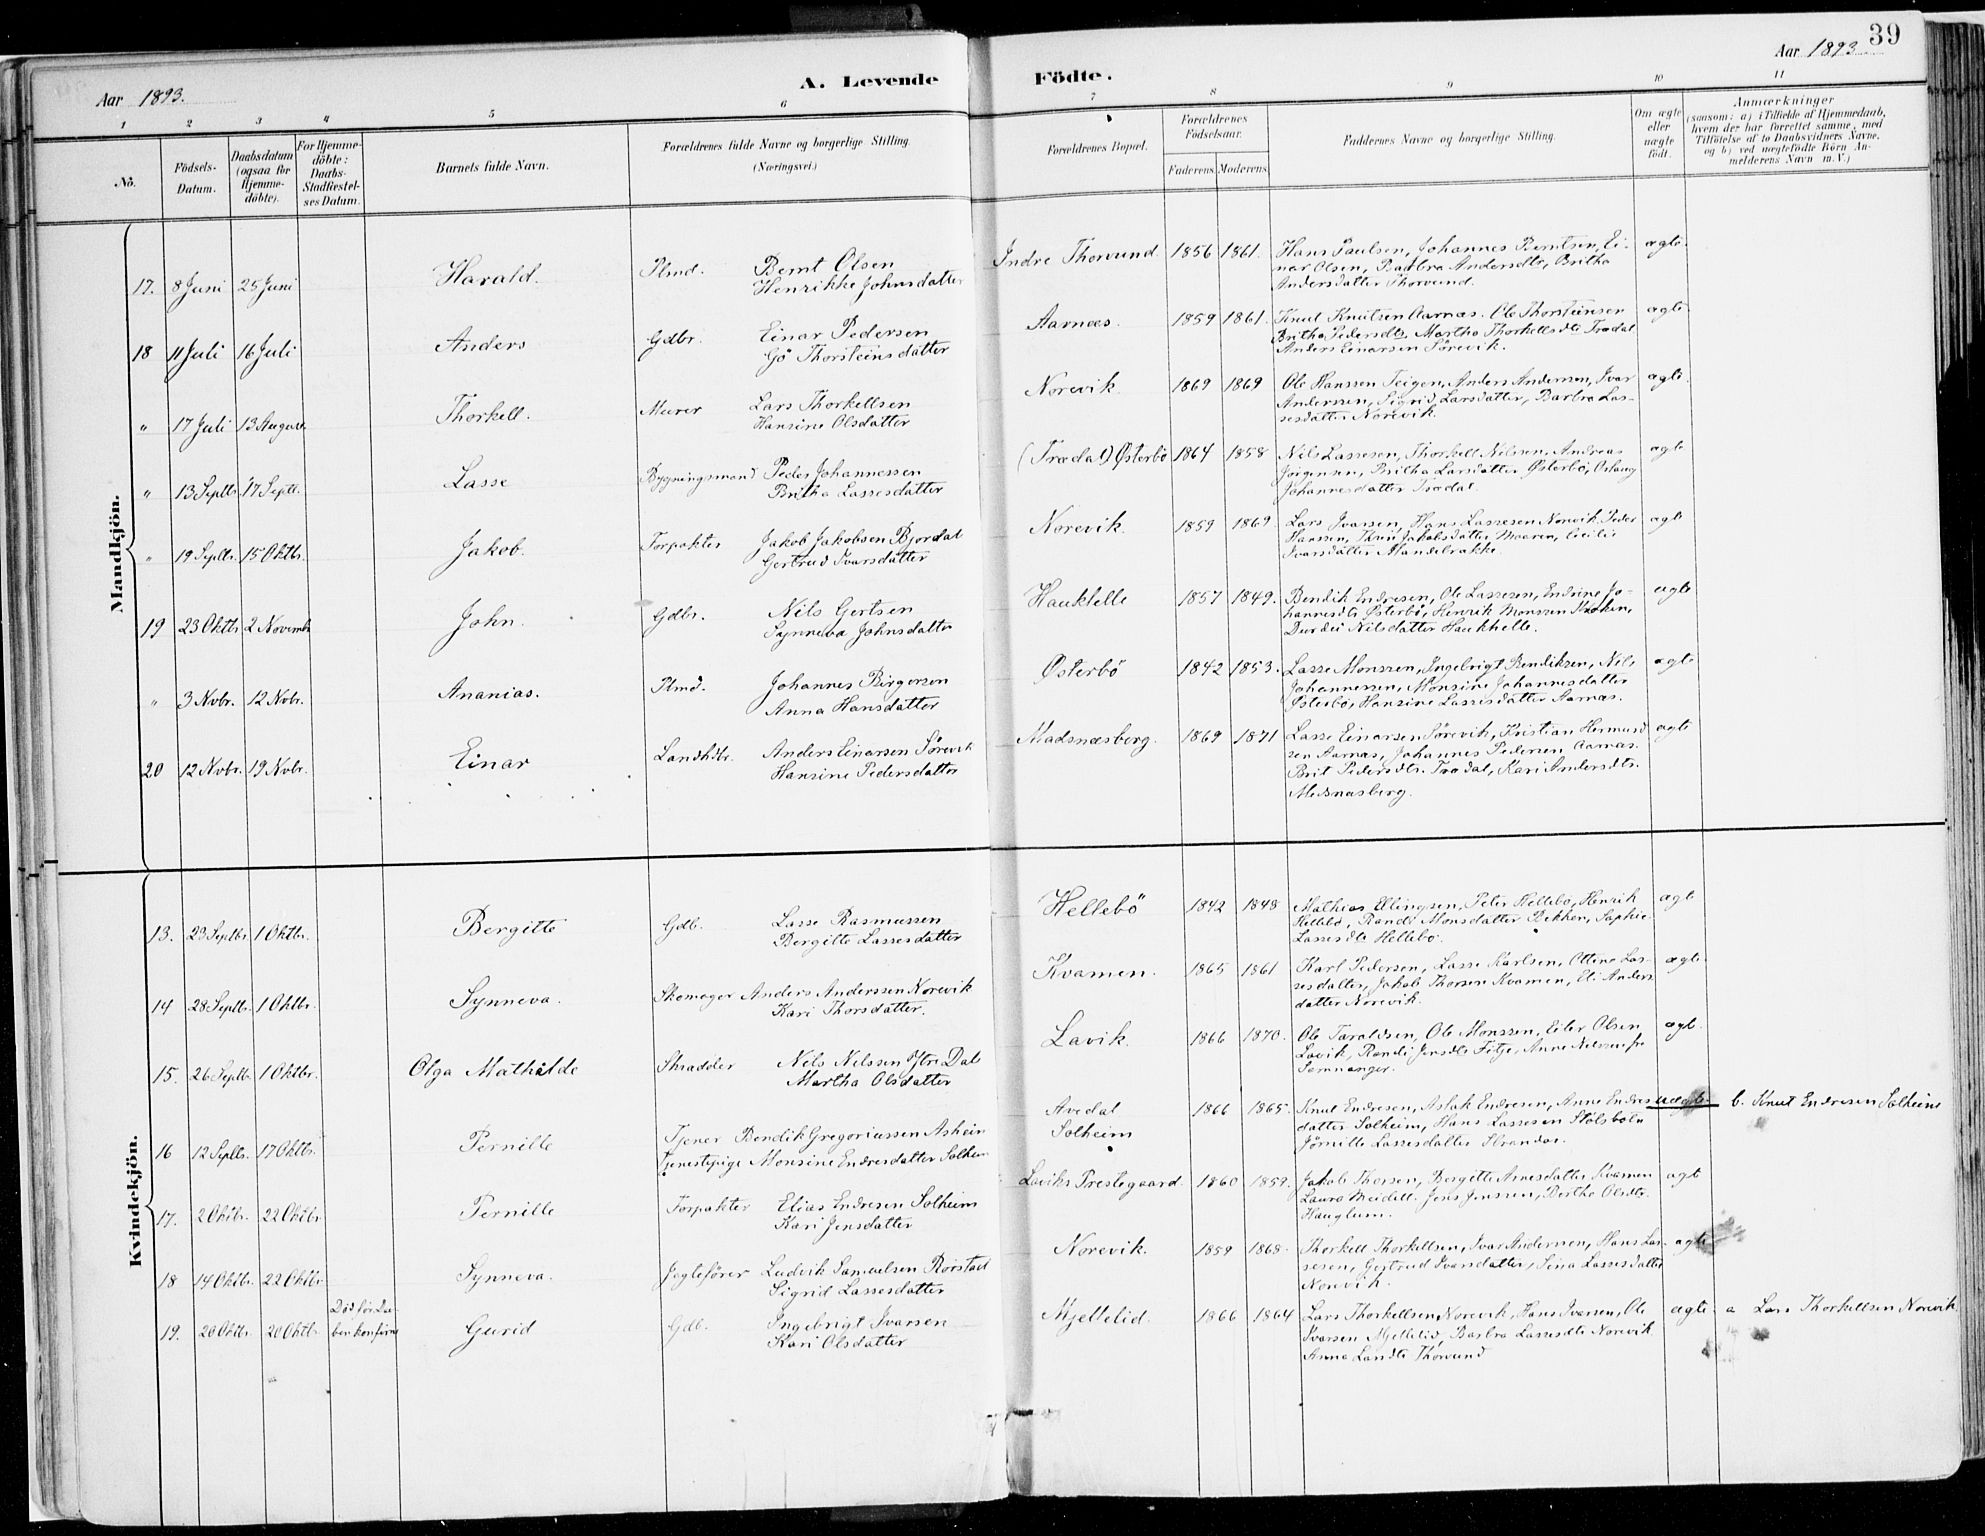 39
Aar 1893.
A. Levende Födte.
Aar 1893.
1 2 3 4 5 6 7 8 9 10 11
No.
Födsels-Datum.
Daabsdatum (ogsaa for Hjemmedöbte).
For Hjemmedöbte: Daabs-Stadfæstelses Datum.
Barnets fulde Navn.
Forældrenes fulde Navne og borgerlige Stilling. (Næringsvei.)
Forældrenes Bopæl.
Forældrenes Födselsaar.
Faderens Moderens
Faddernes Navne og borgerlige Stilling.
Om ægte eller uægte födt.
Anmærkninger
(saasom: a) i Tilfælde af Hjemmedaab, hvem der har forrettet samme, med Tilföielse af to Daabsvidners Navne, og b) ved uægtefödte Börn Anmelderens Navn m. V.)
Mandkjön.
17. 8 Juni 25 Juni Harald. Plmd. Bernt Olsen Indre Thorvund 1856 1861. Hans Paulsen, Johannes Berntsen, Ei- ægte.
Henrikke Johnsdatter nar Olsen, Barbra Andersdtr, Britha
Andersdatter Thorvund.
18 11 Juli 16 Juli Anders Gdbr. Einar Pedersen Aarnæs. 1859 1861. Knut Knutsen Aarnæs. Ole Thorsteinsen ægte
Gö Thorsteinsdatter Britha Pedersdtr Martha Thorkellsdtr Trædal
Anders Einarsen Sørevik.
" 17 Juli 13 August Thorkell. Murer Lars Thorkellsen Norevik. 1869 1869 Ole Hanssen Teigen, Anders Andersen, Ivar ægte.
Hansine Olsdatter Anderssen, Sigrid Larsdatter, Barbra Las-
sesdatter Norevik.
" 13 Septbr 17 Septr. Lasse Bygningsmand Peder Johannessen (Trædal) Østerbø 1864 1858 Nils Lassesen, Thorkell Nilsen, Andreas ægte
Britha Lassesdatter Jörgensen, Britha Larsdatter Østerbø, Oslaug
Johannesdatter Trædal.
" 19 Septbr. 15 Oktbr. Jakob. Forpakter Jakob Jakobsen Bjordal Norevik. 1859 1869. Lars Ivarsen, Hans Lassesen Norevik Peder ægte
Gertrud Ivarsdatter Hansen, Jakobsdatter Maaren, Cecilie
Ivarsdatter
19 23 Oktbr 2 Novembr John. Gdbr. Nils Gertsen Haukhelle 1857 1849. Bendik Endresen, Ole Lassesen, Endrine Jo- ægte
Synneva Johnsdatter hannesdtr Østerbø, Henrik Monssen
Nilsdatter Haukhelle.
" 3 Novbr. 12 Novbr. Ananias. Plmd. Johannes Birgerson Østerbö 1842 1853. Lasse Monssen, Ingebrigt Bendiksen, Nils ægte
Anna Hansdatter Johannessen, Monsine Johannesdatter
Østerbø, Hansine Lassesdatter Aarnæs.
20 12 Novbr. 19 Novbr. Einar Landhdlr. Anders Einarsen Sørevik Madsnæsberg. 1869 1871 Lasse Einarsen Sørevik, Kristian Hermund ægte
Hansine Pedersdatter sen Aarnæs, Johannes Pedersen Aarnæs.
Brit Pedersdtr. Trædal, Kari Andersdtr.
Madsnæsberg.
Kvindekjön.
13. 23 Septbr. 1 Oktbr. Bergitte Gdb. Lasse Rasmussen Hellebö 1842 1848 Mathias Ellingsen, Peter Hellebö, Henrik ægte
Bergitte Lassesdatter Hellebø, Randi Monsdatter Bekken, Sophie
Lassesdtr Hellebø.
14 28 Septbr. 1 Oktbr. Synneva. Skomager Anders Anderssen Norevik Kvamen. 1865 1861 Karl Pedersen, Lasse Karlsen, Ottine Las- ægte
Kari Thorsdatter. sesdatter, Jakob Thorsen Kvamen, Eli Anders
datter Norevik.
15. 26 Septbr. 1 Oktbr. Olga Mathilde Skrædder Nils Nilssen Ytre Dal Lavik. 1866 1870. Ole Taraldsen, Ole Monssen, Eiler Olsen ægte.
Martha Olsdatter Lavik, Randi Jensdtr Fitje, Anne Nilssen fra
Samnanger.
16 12 Septbr. 17 Oktbr. Pernille Tjener Bendik Gregoriussen Asheim Avedal 1866 1865. Knut Endresen, Aslak Endresen, Anne Endres uægte. b. Knut Endresen Solheim
Tjenestepige Monsine Endresdatter Solheim Solheim datter Solheim, Hans Lassesen
Lassesdatter
17. 2 Oktbr. 22 Oktbr. Pernille Forpakter Elias Endresen Solheim Laviks Prestegaard 1860 1859. Jakob Thorsen, Bergitte Arnesdatter Kvamen ægte
Kari Jensdatter Laura Meidell, Jens Jenssen, Berthe Olsdtr
Hauglum.
18 14 Oktbr. 22 Oktbr Synneva. Jægtefører Ludvik Samuelsen Rörstad Norevik. 1859 1868. Thorkell Thorkellsen, Ivar Andersen, Hans Las- ægte
Sigrid Lassesdatter sesen, Gertrud Ivarsdatter, Sina Lassesdatter
Norevik.
19. 20 Oktbr. 20 Oktbr. Död för Daa-
ben konfirm Gurid Gdb. Ingebrigt Ivarsen Mjellelid. 1866 1864 Lars Thorkellsen Norevik, Hans Ivarsen, Ole ægte. a Lars Thorkellsen Norevik
Kari Olsdatter Ivarsen Mjellelid, Barbra Lassesdtr Norevik
Anna Thorvund